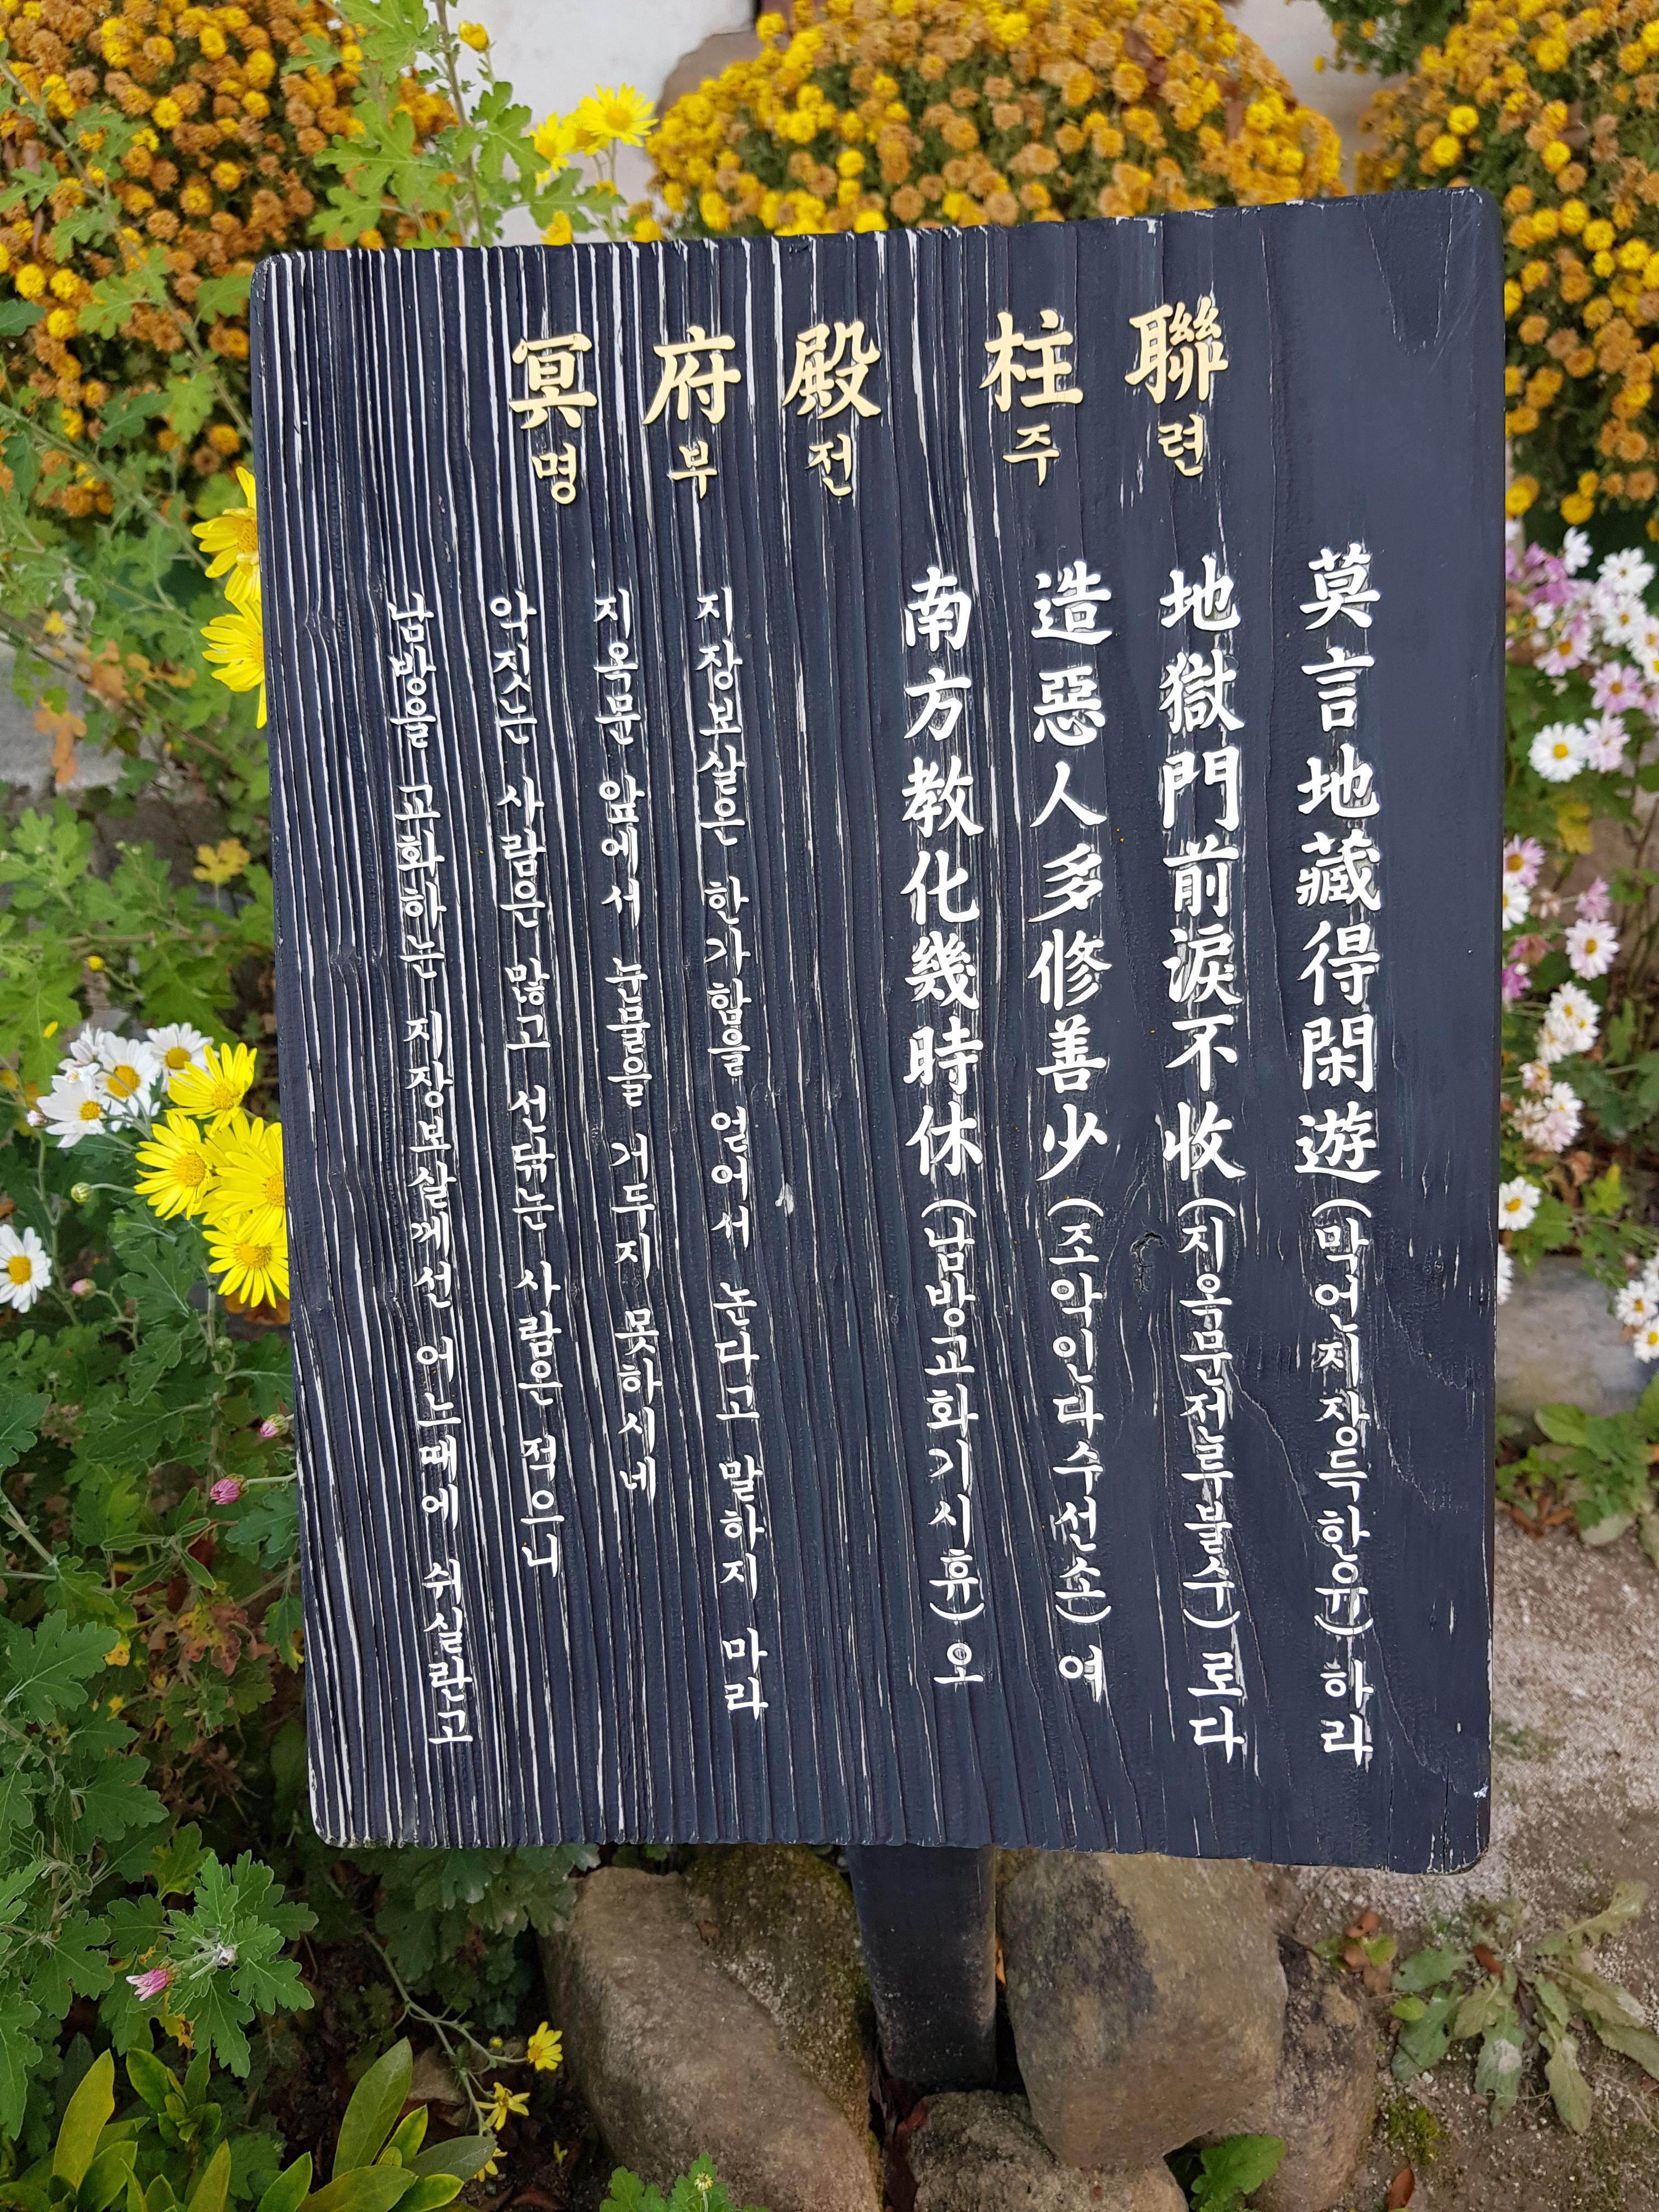 冥府殿 柱聯
명부전 주련
莫言地藏得閑遊(막언지장득한유)하라
地獄門前淚不收(지옥문전루불수)로다
造惡人多修善少(조악인다수선소)여
南方教化幾時休(남방교화기시휴)오
지장보살은 한가함을 얻어서 논다고 말하지 마라
지옥문 앞에서 눈물을 거두지 못하시네
악짓는 사람은 많고 선닦는 사람은 적으니
남방을 교화하는 지장보살께선 어느때에 쉬실란고